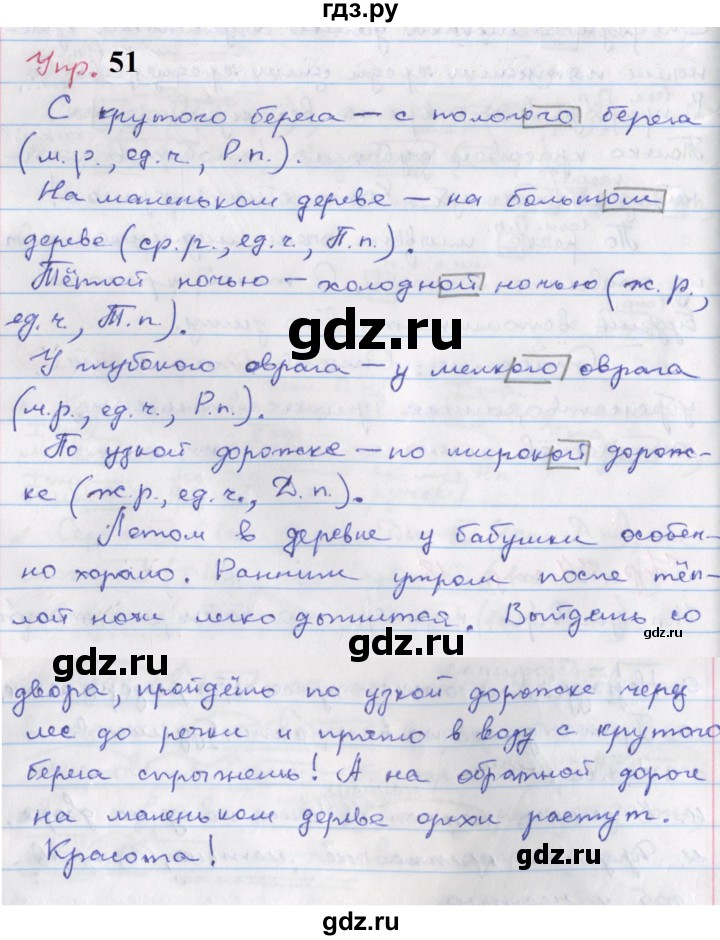 гдз.ру
Упр. 51
С крутого берега – с пологого берега
(м.р., ед.ч., Р.п.).
На маленьком дереве – на большом
дереве (ср.р., ед.ч., П.п.).
Тёплой ночью – холодной ночью (ж.р.,
ед.ч., Т.п.).
gdz.ru
У глубокого оврага – у мелкого оврага
(м.р., ед.ч., Р.п.).
По узкой дорожке – по широкой дорож-
ке (ж.р., ед.ч., Д.п.).
Летом в деревне у бабушки особен-
но хорошо. Ранним утром после тёп-
лой ночи легко дышится. Выйдешь со
gdz.ru
gdz.ru
gdz.ru
двора, пройдёшь по узкой дорожке через
лес до речки и прямо в воду с крутого
берега спрыгнешь! А на обратной дороге
на маленьком дереве орехи растут.
Красота!
gdz.ru
gdz.ru
gdz.ru